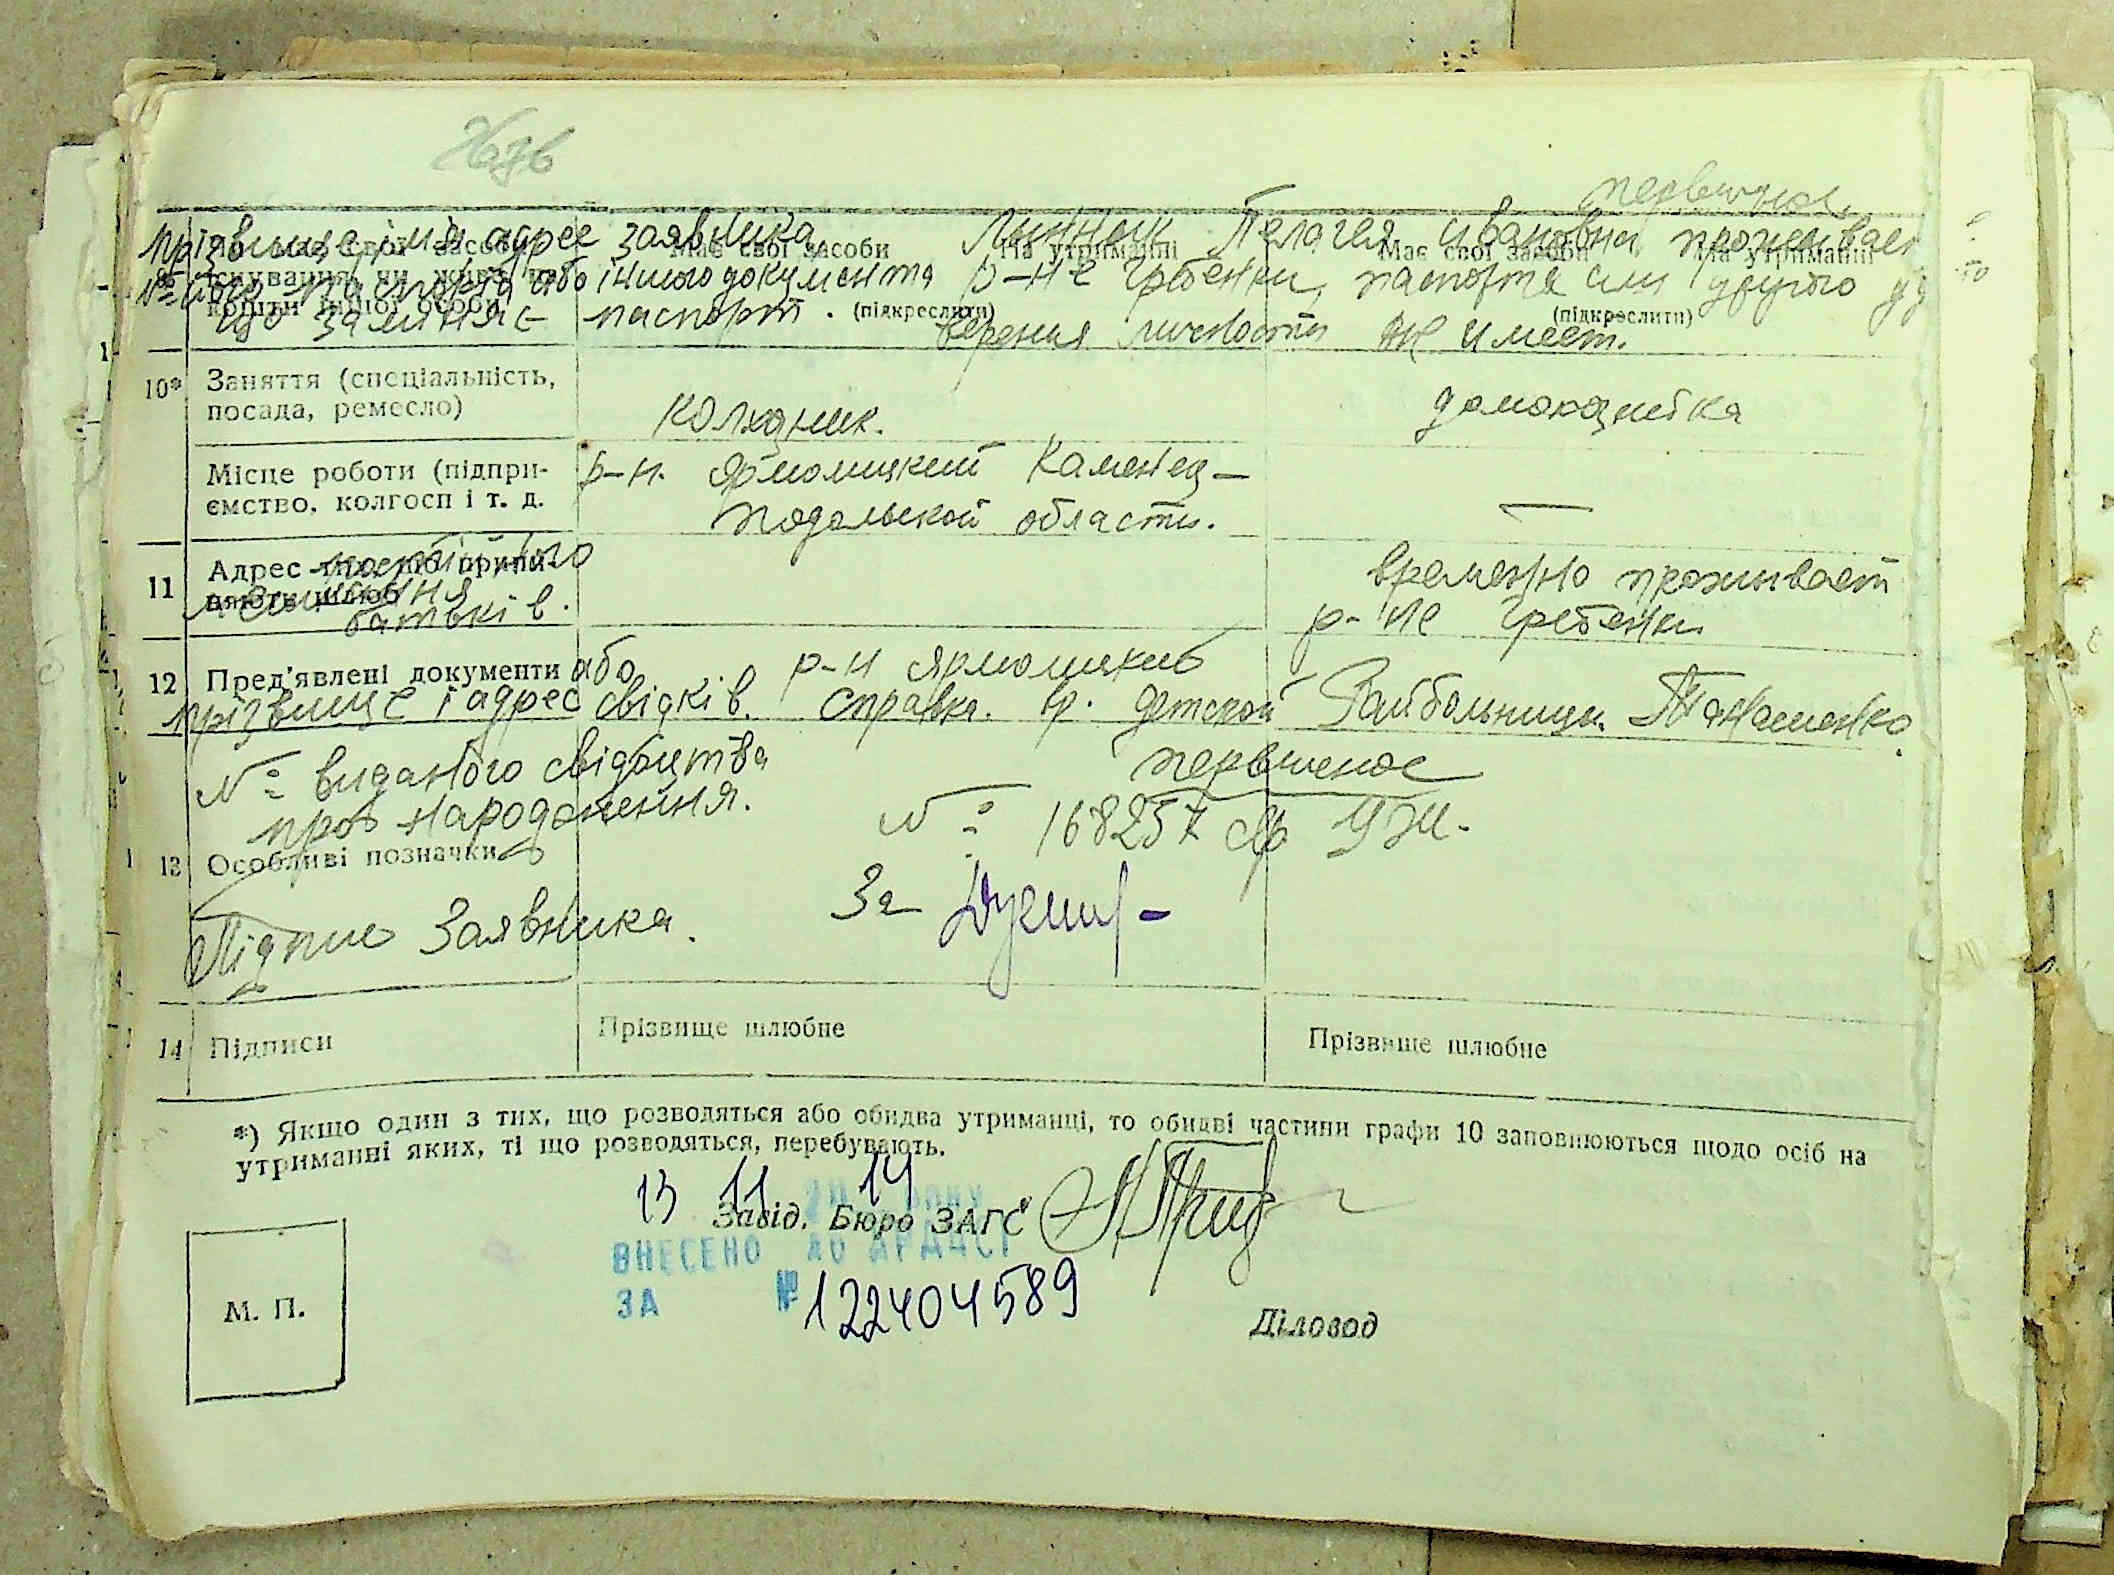 первичное
прізвище, імя, адрес заявника, Пелагея Ивановна, проживает
Має свої засоби На утриманні Має свої засоби На утриманні
№ його паспорта або іншого документа р-не Гребенки, паспорта или другого уд
(підкреслити) (підкреслити)
що заміняє паспорт. верения личности не имеет.
10* Заняття (спеціальність,
посада, ремесло) колхозник. домохозяйка
Місце роботи (підпри-
ємство, колгосп і т. д. р-н. Ярмолицкий Каменец-
Подольской области. —
11 Адрес постійного
мешкання
батьків. временно проживает
р-не Гребенки
12 Пред'явлені документи або р-н Ярмолицкий
прізвище і адрес свідків. справка. вр. детской Райбольницы Танасиенко.
№ виданого свідоцтва первичное
про народження. № 168257 ср УЖ.
13 Особливі позначки
Підпис Заявника. За
14 Підписи Прізвище шлюбне Прізвище шлюбне
*) Якщо один з тих, що розводяться або обидва утриманці, то обидві частини графи 10 заповнюються щодо осіб на
утриманні яких, ті що розводяться, перебувають.
13 11 20 14 року
Завід. Бюро ЗАГС
ВНЕСЕНО ДО ДРАЦСГ
ЗА № 12240 4589
М. П. Діловод